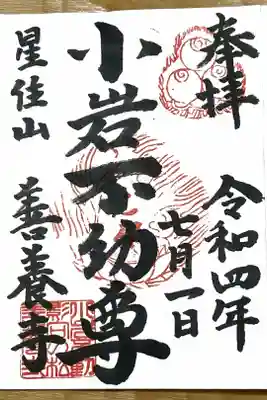 奉拝
令和四年
七月一日
小岩不動尊
星住山
善養寺